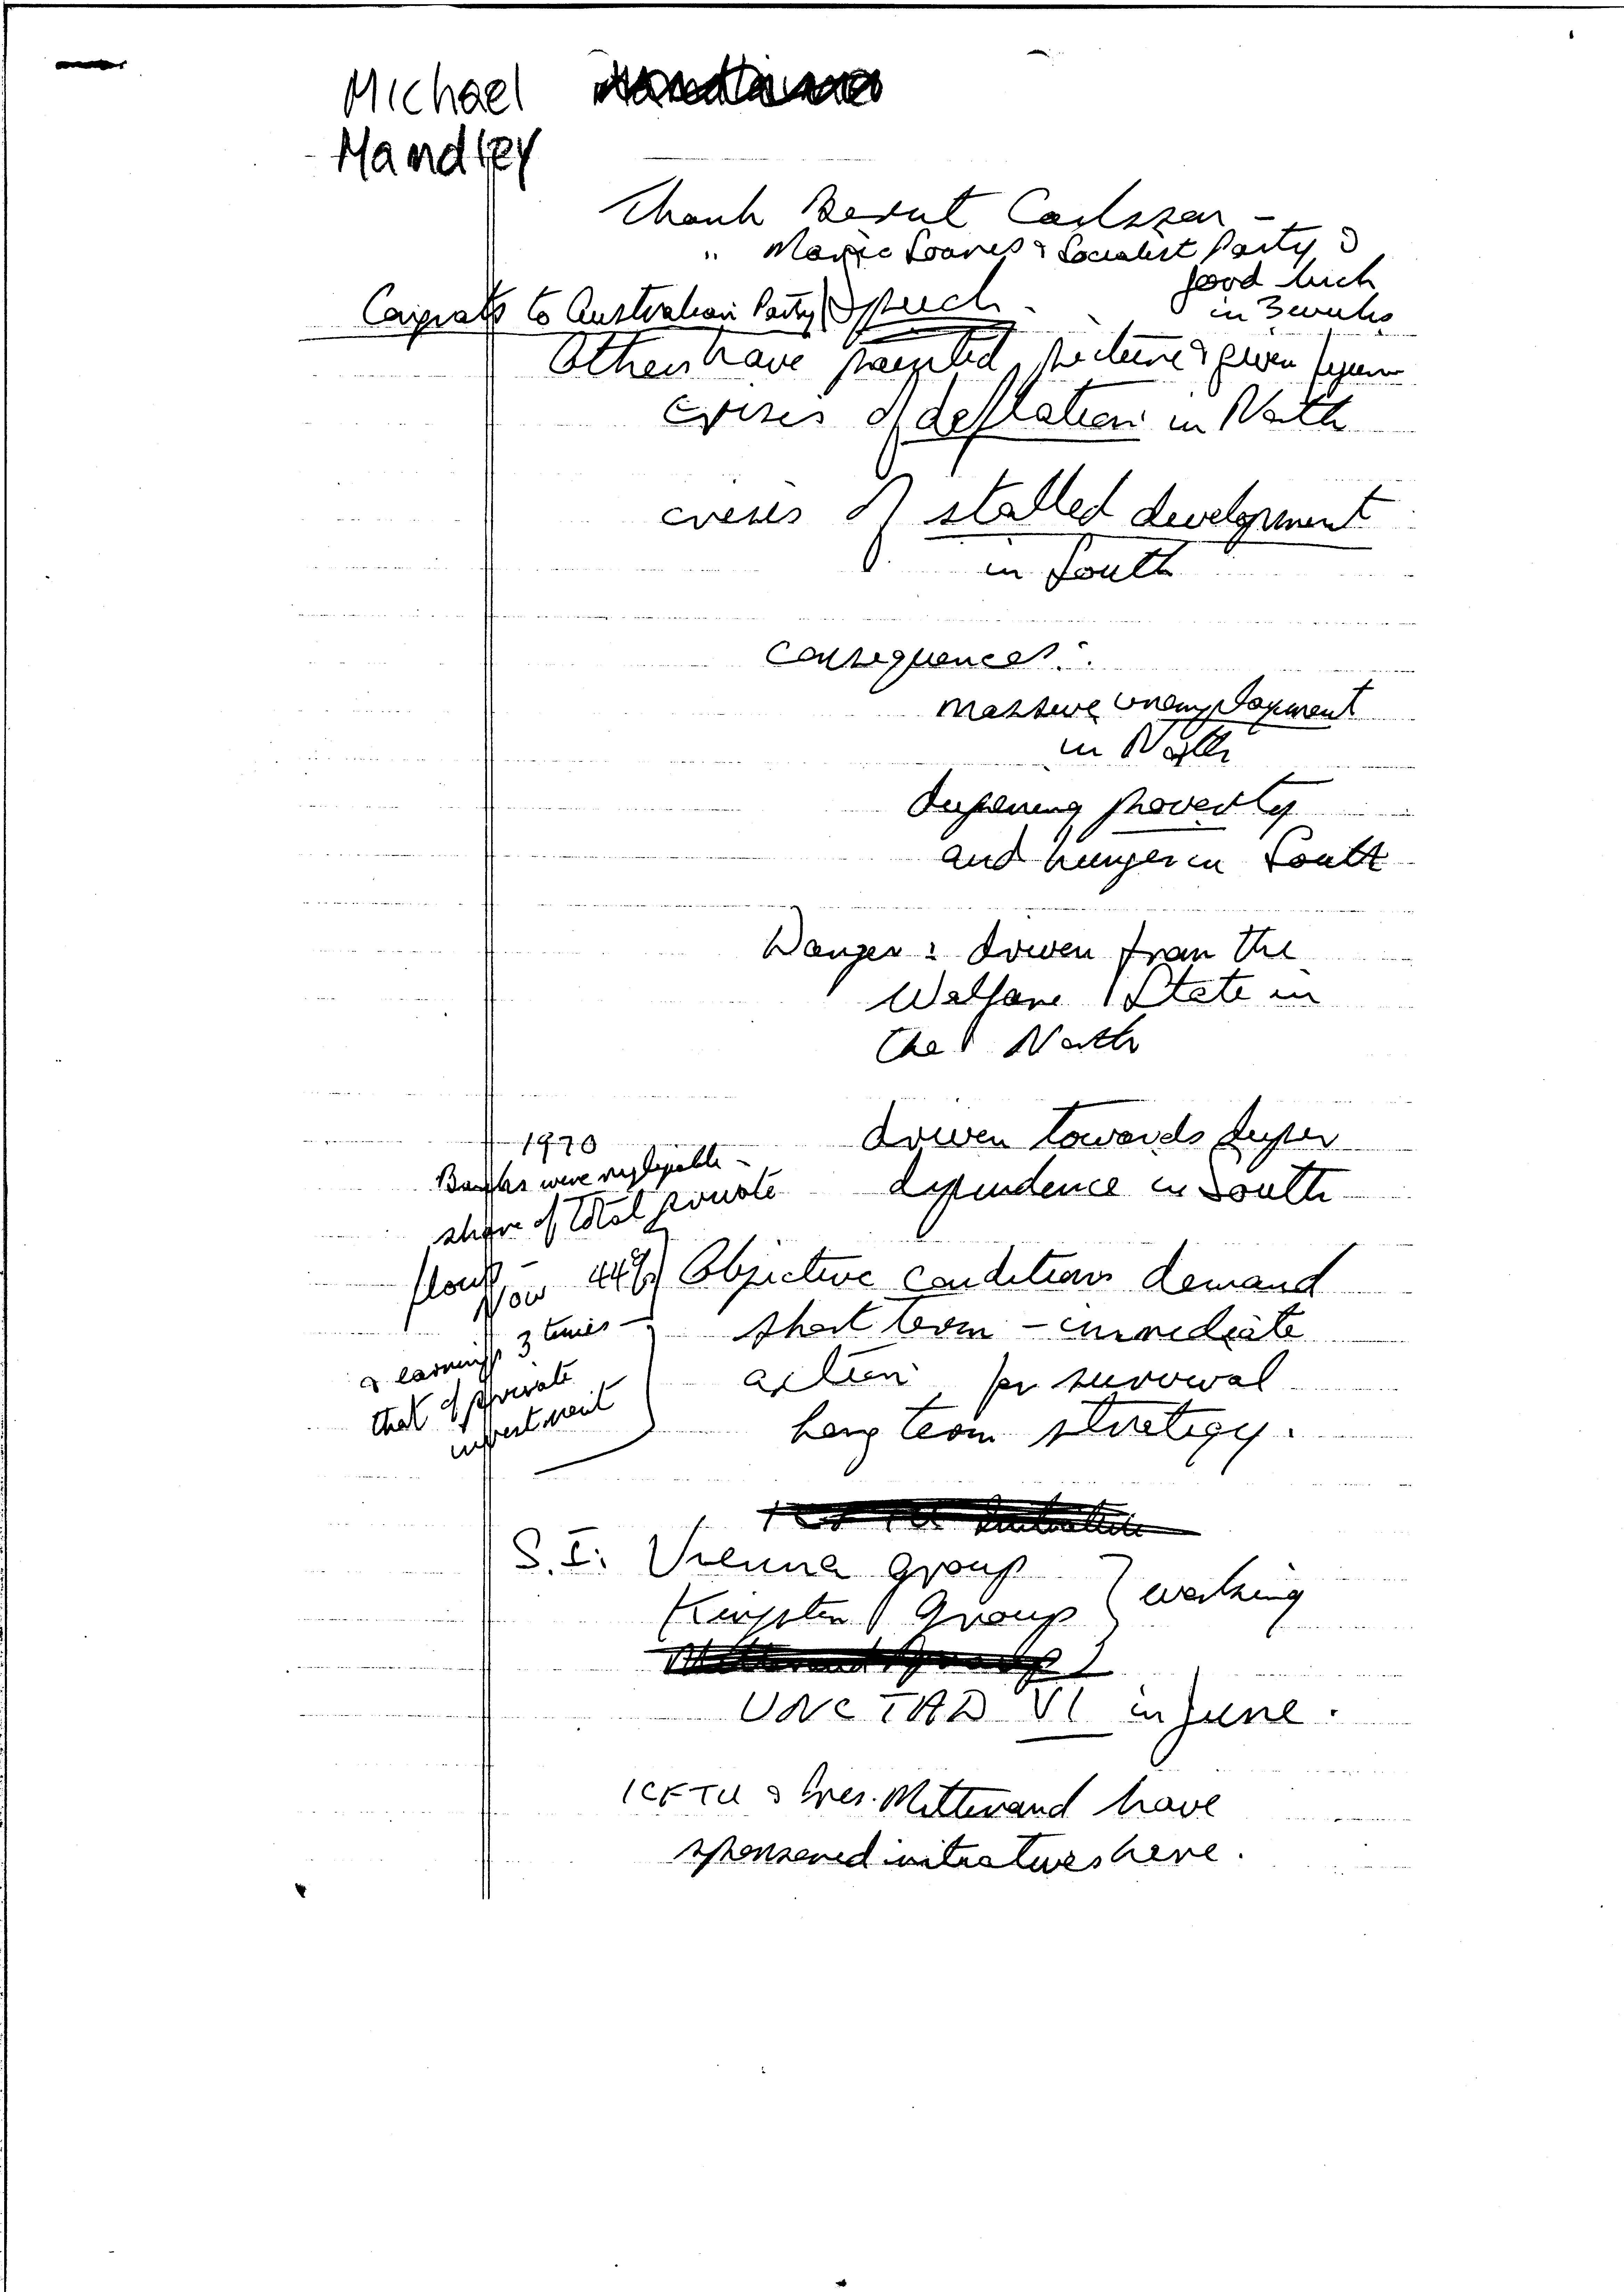 Michael
Mandley
Thank Bernt Carlsson -
" Mario Soares & Socialist Party &
good luck
in 3 weeks
Congrats to Australian Party Speech -
Others have painted picture & given figures
crisis of deflation in North
crisis of stalled development
in South
Consequences :
massive unemployment
in North
deepening poverty
and hunger in South
Danger : driven from the
Welfare State in
the North
driven towards deeper
dependence in South
1970
Banks were negligible -
share of total private
flows -
Now 44%
& earnings 3 times -
that of private
investment
Objective conditions demand
short term - immediate
action for survival
long term strategy.
S.I. Vienna group
Kingston Group } working
UNCTAD VI in June.
ICFTU & Pres. Mitterand have
sponsored initiatives here.